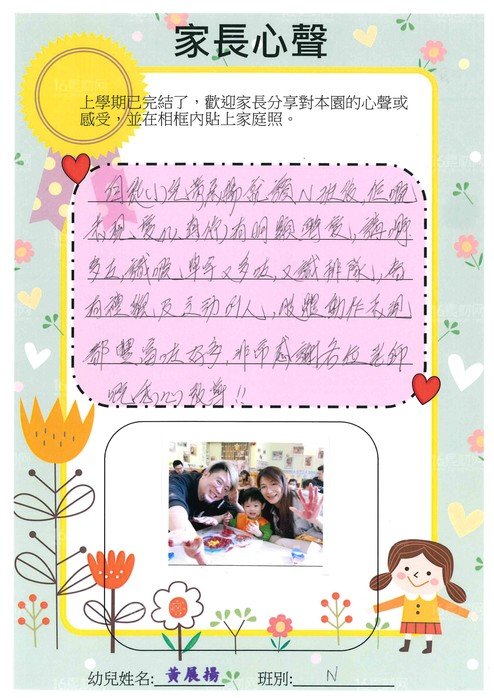 家長心聲
上學期已完結了，歡迎家長分享對本園的心聲或
感受，並在相框內貼上家庭照。
自從小兒黃展揚就讀N班後，在
表現、變化都有明顯
多咗，識 單字又多咗，又識排隊，
有禮貌及主動叫人，肢體動作表現
都豐富咗好多，非常感謝各位老師
嘅悉心教導!!
幼兒姓名: 黃展揚 班別: N